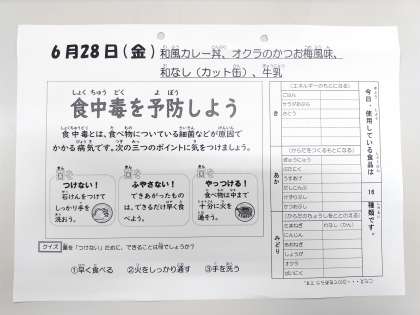 6月28日(金) 和風カレー丼、オクラのかつお梅風味、
和なし(カット缶)、牛乳
食中毒を予防しよう
食中毒とは、食べ物についている細菌などが原因で
かかる病気です。次の三つのポイントに気をつけましょう。
つけない!
石けんをつけて
しっかり手を
洗おう。
ふやさない!
できあがったもの
は、できるだけ早く食
べよう。
やっつける!
食べ物は中まで
十分に火を
通そう。
クイズ 菌を「つけない」ために、できることは何でしょうか?
①早く食べる ②火をしっかり通す ③手を洗う
今日、使用している食品は
16
種類です。
き
(エネルギーのもとになる)
ごはん
サラダあぶら
さとう
あか
(からだをつくるもとになる)
ぎゅうにゅう
ぶたにく
かつおぶし
みどり
(からだのちょうしをととのえる)
たまねぎ
わなし(かん)
にんじん
しょうが
オクラ
にんにく